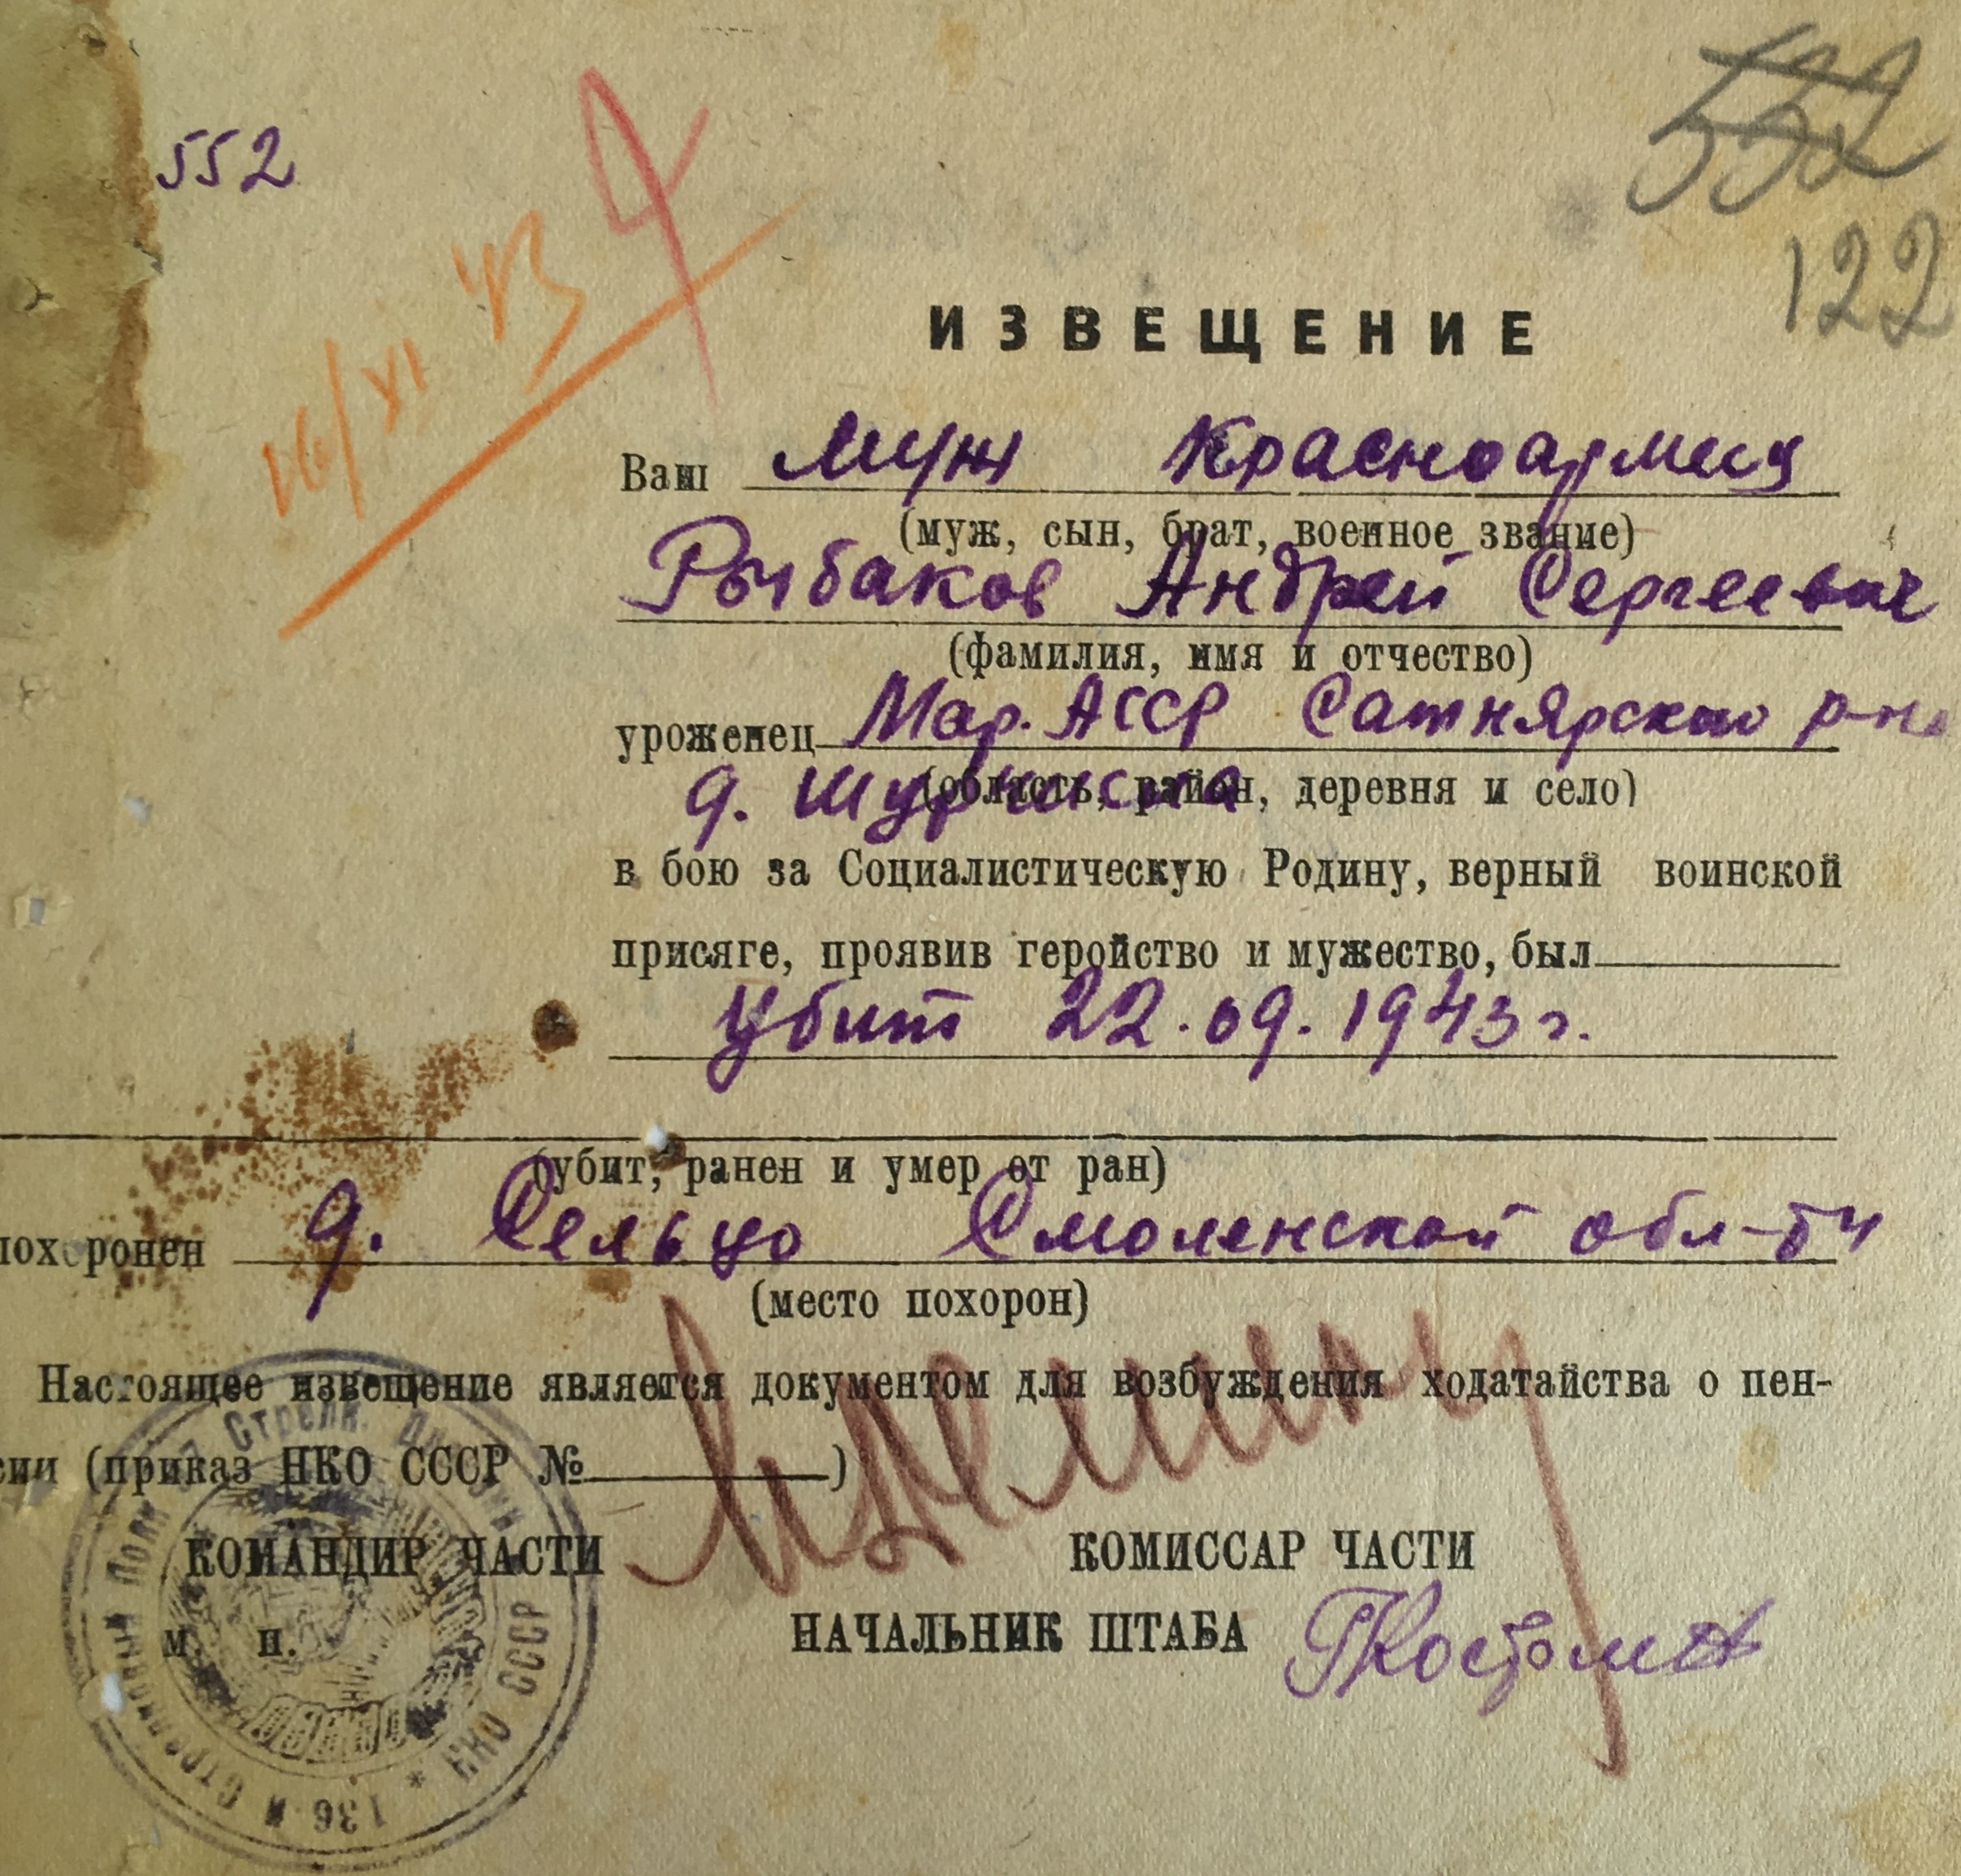 552
552
122
16/XI 43
ИЗВЕЩЕНИЕ
Ваш муж красноармеец
(муж, сын, брат, военное звание)
Рыбаков Андрей Сергеевич
(фамилия, имя и отчество)
уроженец Мар. АССР Сатнярского р-на
(область, район, деревня и село)
д.
в бою за Социалистическую Родину, верный воинской
присяге, проявив геройство и мужество, был
убит 22.09.1943 г.
(убит, ранен и умер от ран)
похоронен д. Сельцо Смоленской обл-ти
(место похорон)
Настоящее извещение является документом для возбуждения ходатайства о пен-
сии (приказ НКО СССР № )
КОМАНДИР ЧАСТИ КОМИССАР ЧАСТИ
м. п. НАЧАЛЬНИК ШТАБА
136 й Стрелковый Полк Стрелк. НКО СССР *